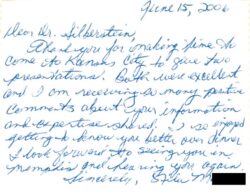 June 15, 2006
Dear Dr. Silberstein,
Thank you for making time to
come to Kansas City to give two
presentations. Both were excellent
and I am receiving so many positive
comments about your information
and expertise shared. I so enjoyed
getting to know you better over dinner
I look forward to seeing you in
Memphis and hearing you again
Sincerely,